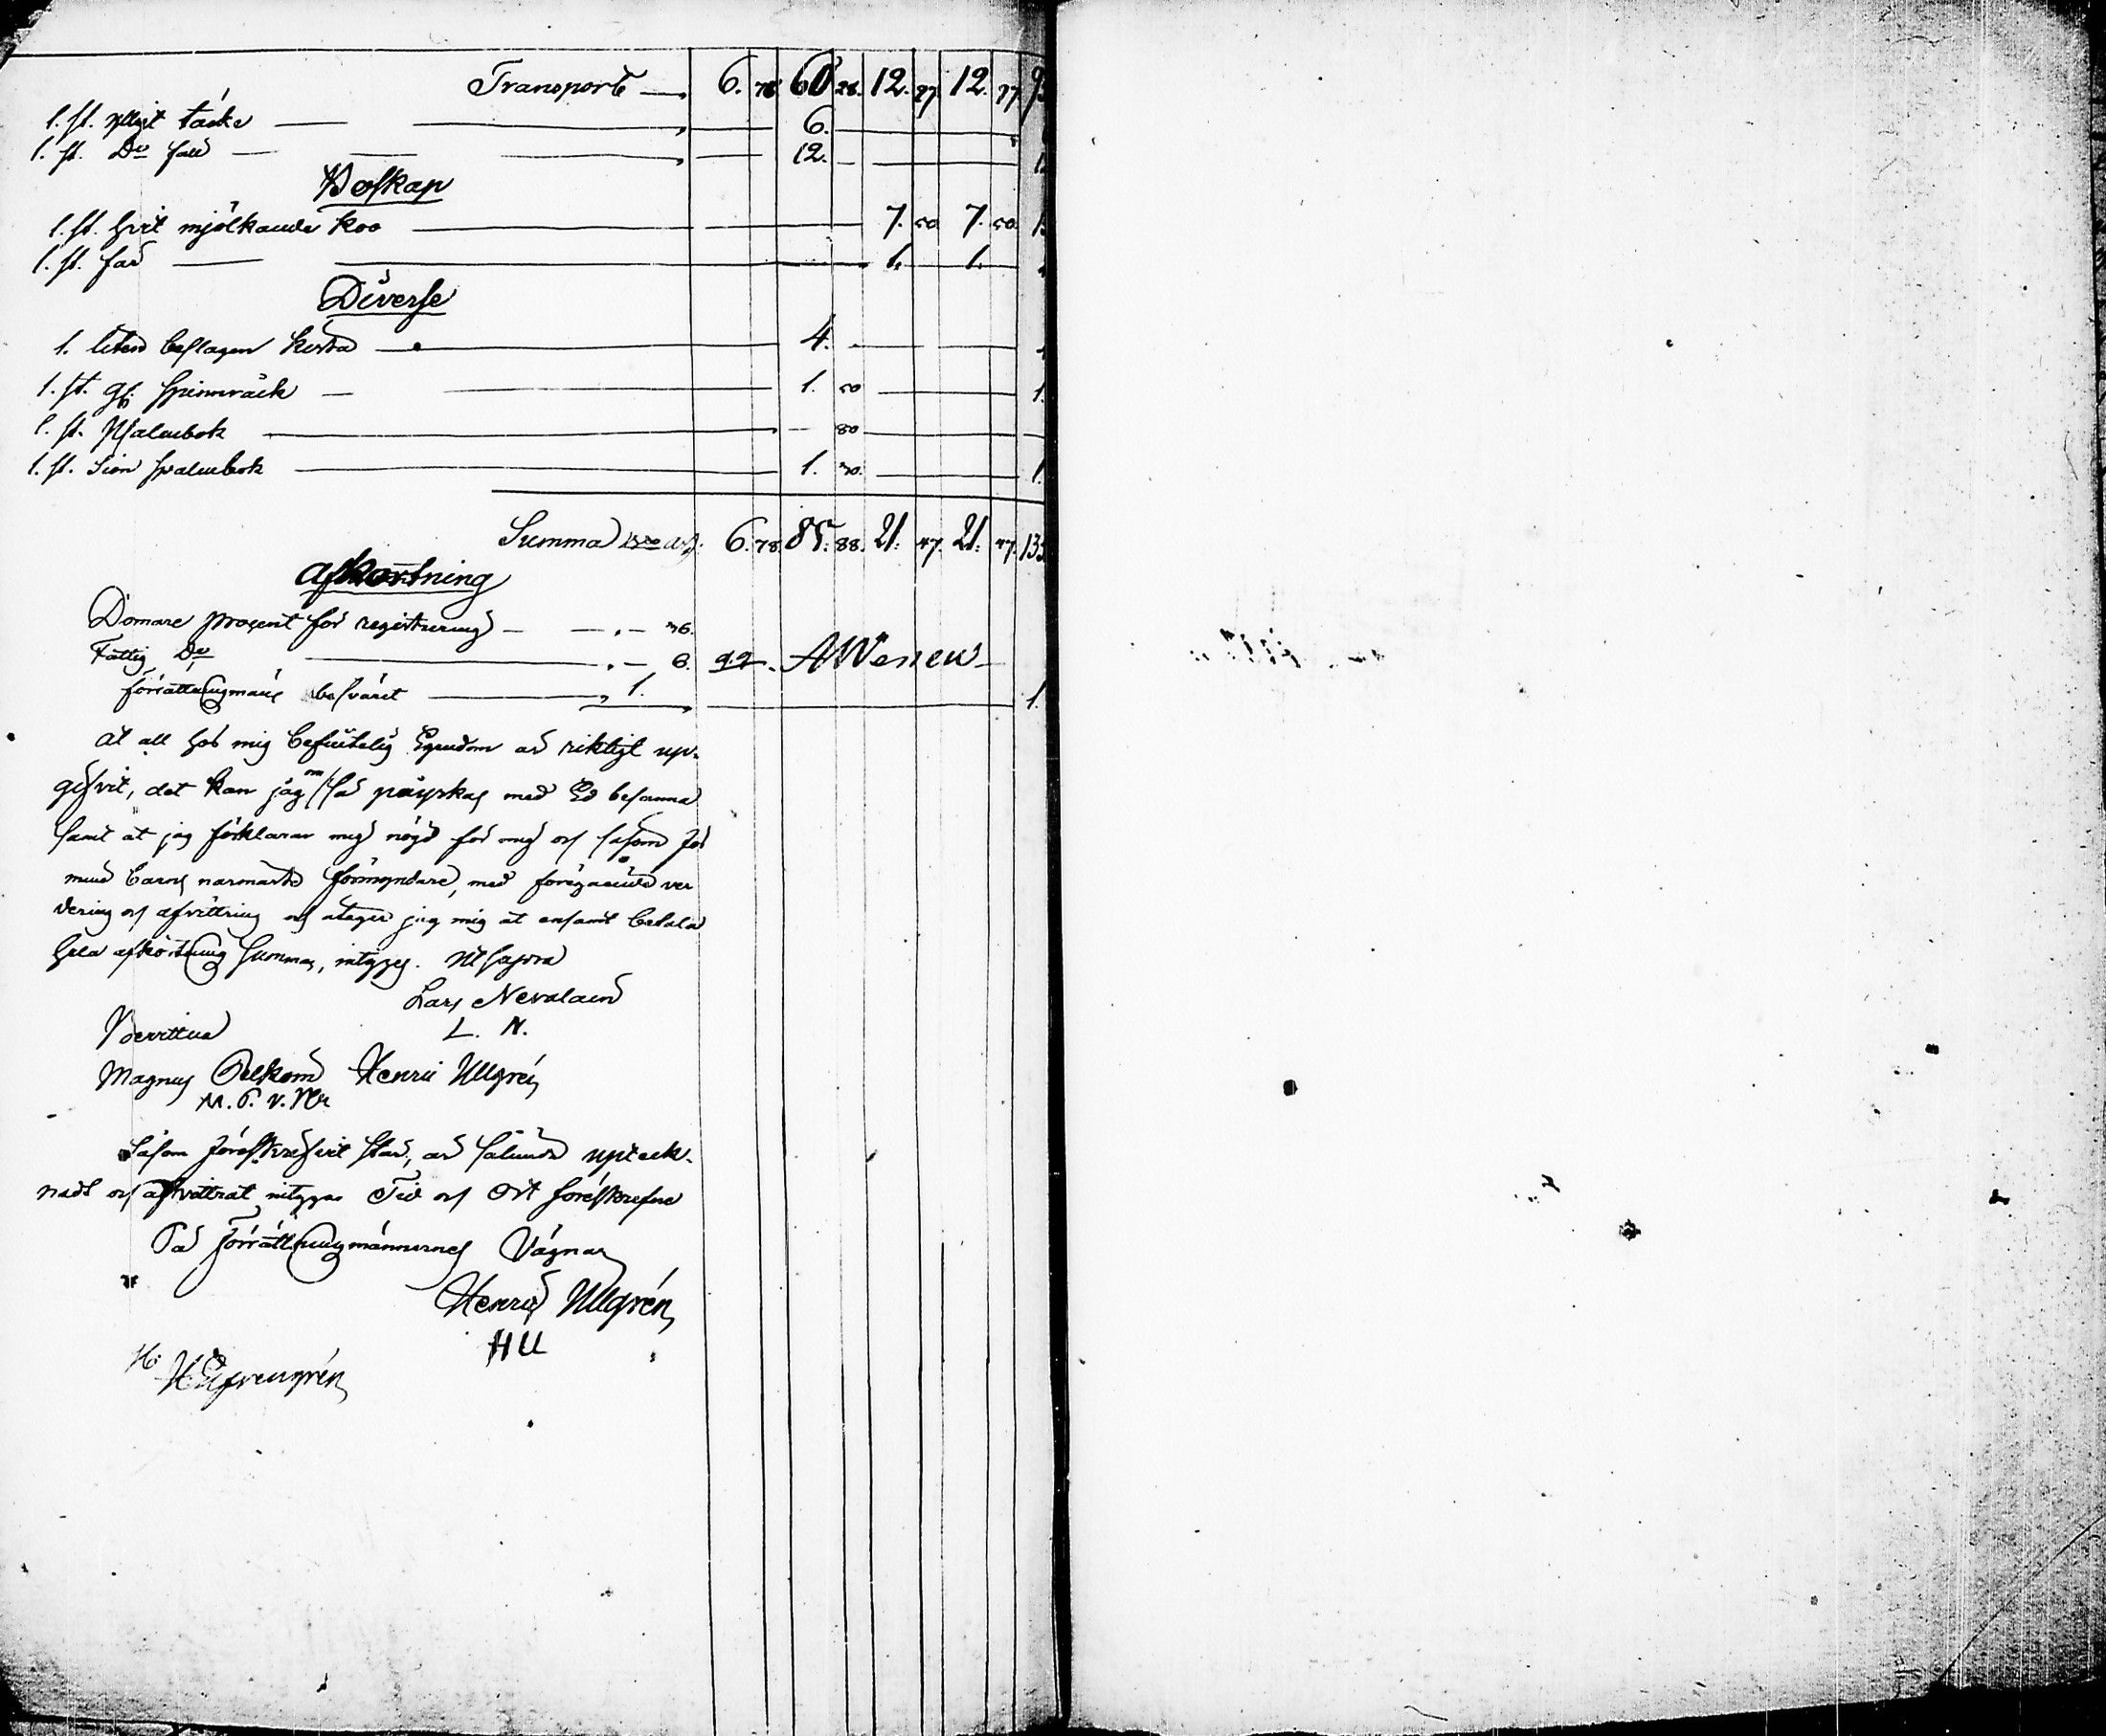 Transport — 6. 78 60 28. 12. 97 12. 97
1. st. ylligt täcke — 6.
1. st. Do fäll — 12.
Boskap
1. st. hvit mjölkande koo — 7. 50 7. 50
1. st. får — 1. 1.
Diverse
1. liten beslagen kista — 4.
1. st. spinnråck — 1. 50
1. st. Psalmbok — 80
1. st. Sion psalmbok — 1.
Summa 6. 78 85. 88. 21. 47. 21. 47. 13
Afkortning
Domare procent för registrering — 36.
Fattig Do — 6. A Wenew
förrättningmans besväret — 1. 1.
At all hos mig befintelig Egendom är riktigt up-
gifvit, det kan jag om så påyrkas med Ed besanna
samt at jag förklarar mig nöjd för mig och såsom
mina barns närmaste förmyndare, med föregående ver
dering och afvittring och åtager jag mig at ensamt betala
hela afkortning summan, intygas. Ut supra
Lars Nevalain
Bevittna L. N.
Magnus Henric Ullgrén
M. P.
Såsom föreskrefvit står, är sålunda upteck-
nadt och afvittrat intygas Tid och Ort föreskrefne
På Förrättningmännernes Vägnar
Henric Ullgrén
HU